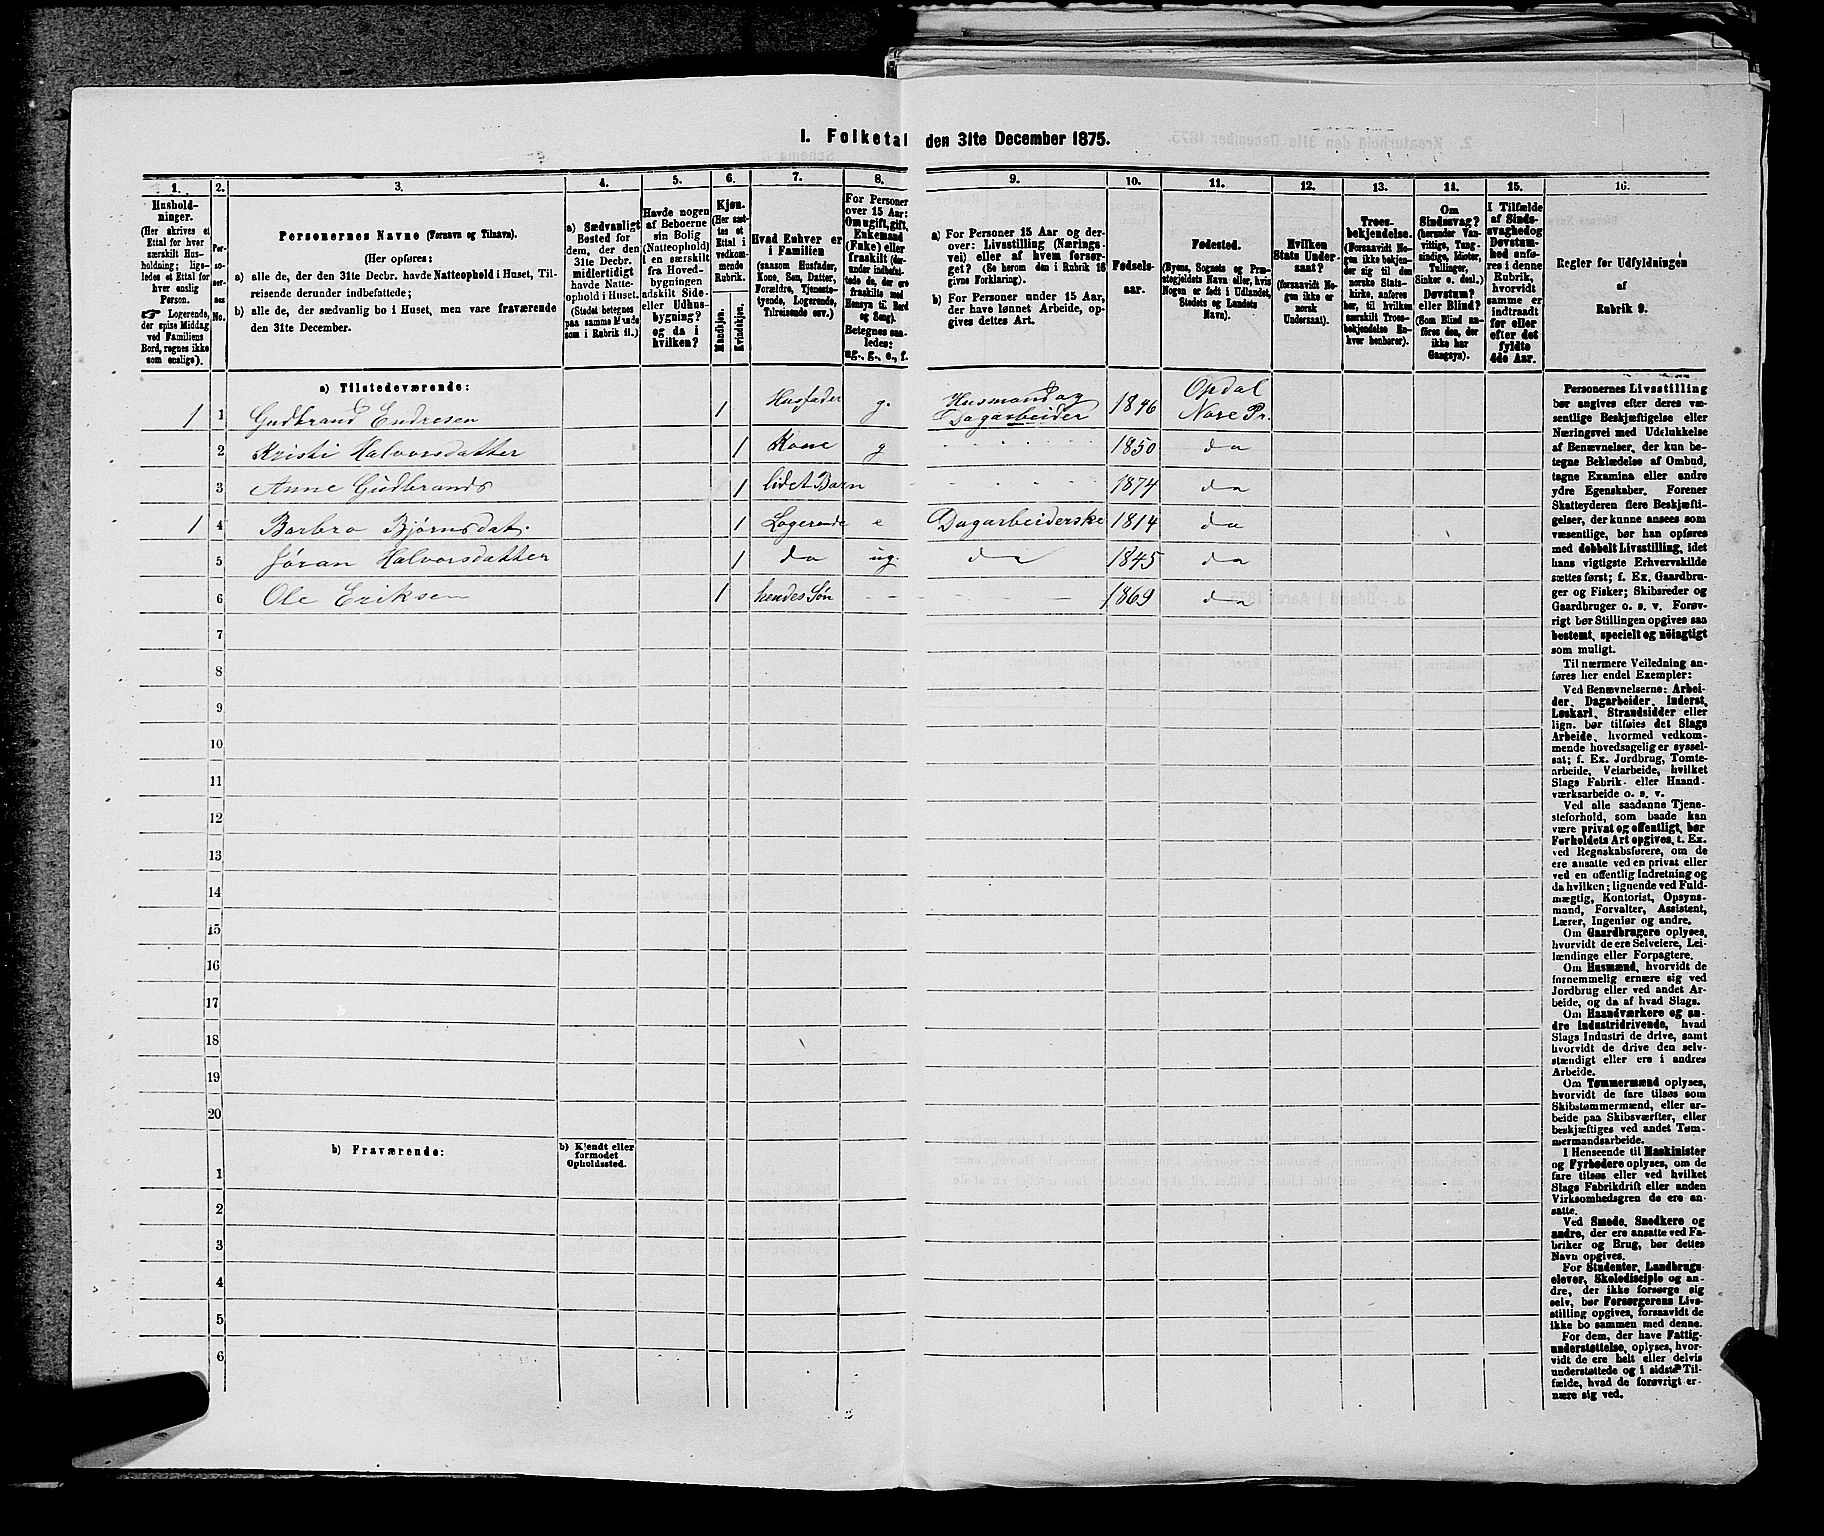 I. Folketal den 31te December 1875.
1. 2. 3. 4. 5. 6. 7. 8. 9. 10. 11. 12. 13. 14. 15. 16.
Husholdninger.
(Her skrives et Ettal for hver særskilt Husholdning; ligeledes et Ettal for hver enslig Person.
☞ Logerende, der spise Middag ved Familiens Bord, regnes ikke som enslige).
Personernes No.
Personernes Navne (Fornavn og Tilnavn).
(Her opføres:
a) alle de, der den 31te Decbr. havde Natteophold i Huset, Tilreisende derunder indbefattede;
b) alle de, der sædvanlig bo i Huset, men vare fraværende den 31te December.
a) Sædvanligt Bosted for dem, der den 31te Decbr. midlertidigt havde Natteophold i Huset. (Stedet betegnes paa samme Maade som i Rubrik 11.)
Havde nogen af Beboerne sin Bolig (Natteophold) i en særskilt fra Hovedbygningen adskilt Side- eller Udhusbygning? og da i hvilken?
Kjøn.
(Her sættes et Ettal i vedkommende Rubrik.
Mandkjøn.
Kvindekjøn.
Hvad Enhver er i Familien
(saasom Husfader, Kone, Søn, Datter, Forældre, Tjenestetyende, Logerende, Tilreisende osv.)
For Personer over 15 Aar: Om ugift, gift, Enkemand (Enke) eller fraskilt (derunder indbefattede de, der ere fraskilte med Hensyn til Bord og Seng).
Betegnes saaledes: ug., g., e., f.
a) For Personer 15 Aar og derover: Livsstilling (Næringsvei) eller af hvem forsørget? (Se herom den i Rubrik 16 givne Forklaring).
b) For Personer under 15 Aar, der have lønnet Arbeide, opgives dettes Art.
Fødselsaar.
Fødested.
(Byens, Sognets og Præstegjeldets Navn eller, hvis Nogen er født i Udlandet, Stedets og Landets Navn).
Hvilken Stats Undersaat?
(forsaavidt Nogen ikke er norsk Undersaat).
Troesbekjendelse.
(Forsaavidt Nogen ikke bekjender sig til den norske Statskirke, anføres her, til hvilken særskilt Troesbekjendelse Enhver henhører).
Om Sindssvag? (herunder Vanvittige, Tungsindige, Idioter, Tullinger, Sinker o. desl.) Døvstum? eller Blind? (Som Blind anføres den, der ikke har Gangsyn).
I Tilfælde af Sindssvaghed og Døvstumhed anføres i denne Rubrik, hvorvidt samme er indtraadt før eller efter det fyldte 4de Aar.
Regler for Udfyldningen af Rubrik 9.
a) Tilstedeværende:
1 1 Gudbrand Endresen 1 Husfader g. Husmand og Dagarbeider 1846 Opdal Nore Pr.
2 Kristi Halvorsdatter 1 Kone g 1850 do
3 Anne Gudbrands 1 lidet Barn 1874 do
1 4 Barbro Bjørnsdat. 1 Logerende e Dagarbeiderske 1814 do
5 Jøran Halvorsdatter 1 do ug. do 1845 do
6 Ole Eriksen 1 hendes Søn 1869 do
7
8
9
10
11
12
13
14
15
16
17
18
19
20
b) Fraværende:
b) Kjendt eller formodet Opholdssted.
1
2
3
4
5
6
Personernes Livsstilling
bør angives efter deres væ-
sentlige Beskjæftigelse eller
Næringsvei med Udelukkelse
af Benævnelser, der kun be-
tegne Beklædelse af Ombud,
tagne Examina eller andre
ydre Egenskaber. Forener
Skatteyderen flere Beskjæfti-
gelser, der kunne ansees som
væsentlige, bør han opføres
med dobbelt Livsstilling, idet
hans vigtigste Erhvervskilde
sættes først; f. Ex. Gaardbru-
ger og Fisker; Skibsreder og
Gaardbruger o. s. v. Forøv-
rigt bør Stillingen opgives saa
bestemt, specielt og nöiagtigt
som muligt.
Til nærmere Veiledning an-
føres her endel Exempler:
Ved Benævnelserne: Arbei-
der, Dagarbeider, Inderst,
Løskarl, Strandsidder eller
lign. bør tilføies det Slags
Arbeide, hvormed vedkom-
mende hovedsagelig er syssel-
sat; f. Ex. Jordbrug, Tomte-
arbeide, Veiarbeide, hvilket
Slags Fabrik- eller Haand-
værksarbeide o. s. v.
Ved alle saadanne Tjene-
steforhold, som baade kan
være privat og offentligt, bør
Forholdets Art opgives, t. Ex.
ved Regnskabsførere, om de
ere ansatte ved en privat eller
ved en offentlig Indretning og
da hvilken; lignende ved Fuld-
mægtig, Kontorist, Opsyns-
mand, Forvalter, Assistent,
Lærer, Ingeniør og andre.
Om Gaardbrugere oplyses,
hvorvidt de ere Selveiere, Lei-
lændinge eller Forpagtere.
Om Husmænd, hvorvidt de
fornemmelig ernære sig ved
Jordbrug eller ved andet Ar-
beide, og da af hvad Slags.
Om Haandværkere og an-
dre Industridrivende, hvad
Slags Industri de drive, samt
hvorvidt de drive den selv-
stændigt eller ere i andres
Arbeide.
Om Tømmermænd oplyses,
hvorvidt de fare tilsøs som
Skibstømmermænd, eller ar-
beide paa Skibsværfter, eller
beskjæftiges ved andet Tøm-
mermandsarbeide.
I Henseende til Maskinister
og Fyrbødere oplyses, om de
fare tilsøs eller ved hvilket
Slags Fabrikdrift eller anden
Virksomhedsgren de ere an-
satte.
Ved Smede, Snedkere og
andre, der ere ansatte ved Fa-
briker og Brug, bør dettes
Navn opgives.
For Studenter, Landbrugs-
elever, Skoledisciple og an-
dre, der ikke forsørge sig
selv, bør Forsørgerens Livs-
stilling opgives, forsaavidt de
ikke bo sammen med denne.
For dem, der have Fattig-
understøttelse, oplyses, hvor-
vidt de ere helt eller delvis
understøttede og i sidste Til-
fælde, hvad de forøvrigt er-
nære sig ved.